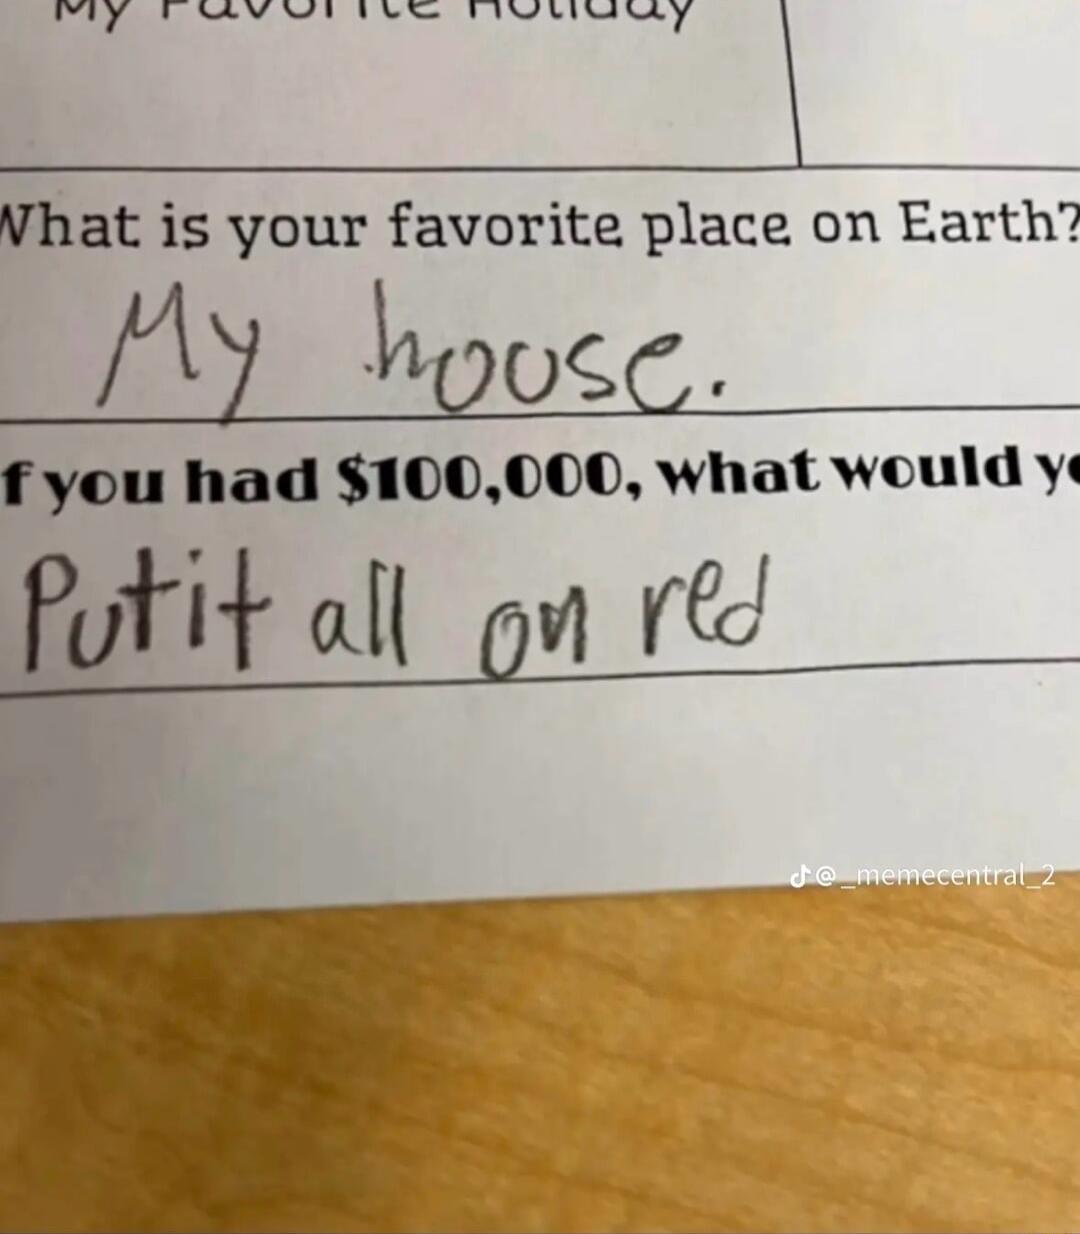 My Favorite Holiday
What is your favorite place on Earth?
My house.
f you had $100,000, what would yo
Put it all on red
@_memecentral_2